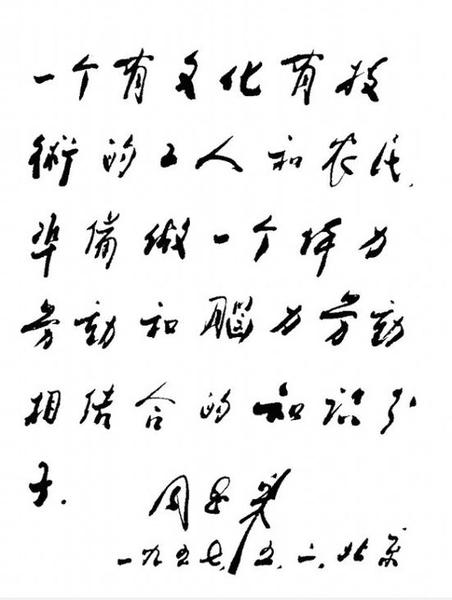 一个有文化有技
術的工人和农民,
準備做一个体力
劳动和脑力劳动
相结合的知识分
子.
周恩来
一九五七,五.二.北京